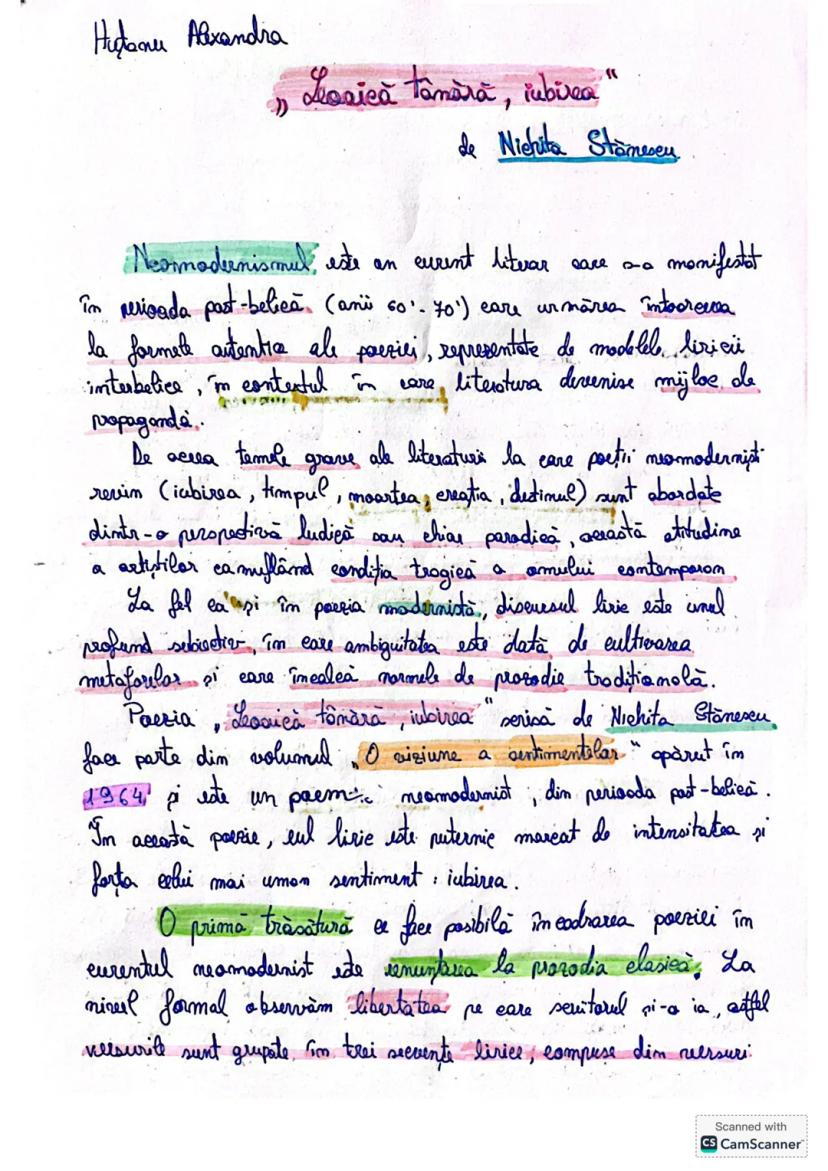 Huțanu Alexandra
„Leoaică tânără, iubirea"
de Nichita Stănescu
Neomodernismul, este un curent literar care s-a manifestat
în perioada post-belică (anii 60'-70') care urmărea întoarcerea
la formele autentice ale poeziei, reprezentate de modelele liricii
interbelice, în contextul în care literatura devenise mijloc de
propagandă.
De aceea temele grave ale literaturii la care poeții neomoderniști
revin (iubirea, timpul, moartea, creația, destinul) sunt abordate
dintr-o perspectivă ludică sau chiar parodică, această atitudine
a artiștilor camuflând condiția tragică a omului contemporan
La fel ca și în poezia modernistă, discursul liric este unul
profund subiectiv, în care ambiguitatea este dată de cultivarea
metaforelor și care încalcă normele de prozodie tradițională.
Poezia „Leoaică tânără, iubirea" scrisă de Nichita Stănescu
face parte din volumul „O viziune a sentimentelor" apărut în
1964 și este un poem neomodernist, din perioada post-belică.
În această poezie, eul liric este puternic marcat de intensitatea și
forța celui mai uman sentiment: iubirea.
O primă trăsătură ce face posibilă încadrarea poeziei în
curentul neomodernist este renunțarea la prozodia clasică. La
nivel formal observăm libertatea pe care scriitorul și-o ia, astfel
versurile sunt grupate în trei secvențe lirice, compuse din versuri
Scanned with
CS CamScanner